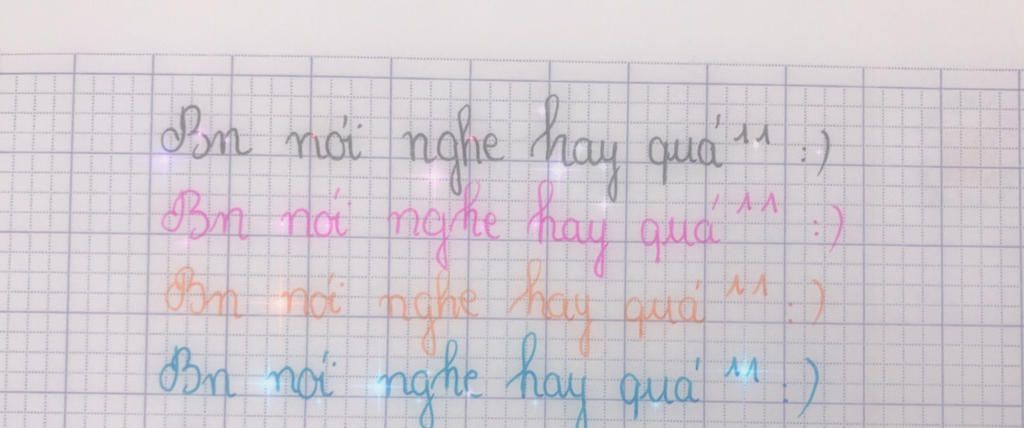 Bn nói nghe hay quá ^^ :)
Bn nói nghe hay quá ^^ :)
Bn nói nghe hay quá ^^ :)
Bn nói nghe hay quá ^^ :)